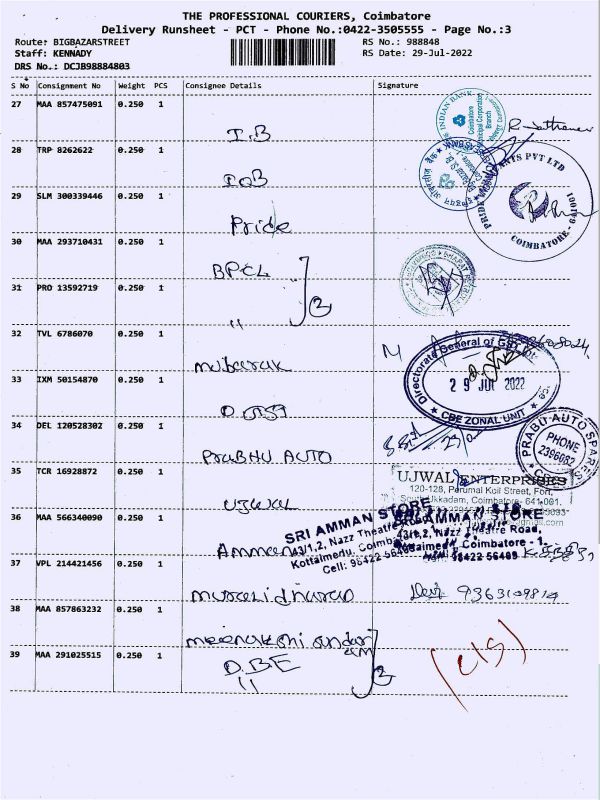 THE PROFESSIONAL COURIERS, Coimbatore
Delivery Runsheet - PCT - Phone No.:0422-3505555 - Page No.:3
Route: BIGBAZARSTREET RS No.: 988848
Staff: KENNADY RS Date: 29-Jul-2022
DRS No.: DCJB98884803
S No Consignment No Weight PCS Consignee Details Signature
27 MAA 857475091 0.250 1
I.B
INDIAN BANK
28 TRP 8262622 0.250 1
IOB
29 SLM 300339446 0.250 1
Pride
COIMBATORE
30 MAA 293710431 0.250 1
BPCL
31 PRO 13592719 0.250 1
"
2
32 TVL 6786070 0.250 1
mubarak
Directorate General of
29 JUL 2022
CBE ZONAL UNIT
33 IXM 50154870 0.250 1
34 DEL 120528302 0.250 1
Prabhu AUTO
PRABU AUTO SPARES
PHONE
2396082
35 TCR 16928872 0.250 1
ujwal
UJWAL ENTERPRISES
120-128, Perumal Koil Street, Fort,
South Ukkadam, Coimbatore- 641 001
36 MAA 566340090 0.250 1
Amman
SRI AMMAN STORE
43/1,2, Nazz Theatre Road,
Kottaimedu, Coimbatore - 1.
Cell: 98422 56489
37 VPL 214421456 0.250 1
muralidharan
9363109814
38 MAA 857863232 0.250 1
39 MAA 291025515 0.250 1
D.B.E
"
2